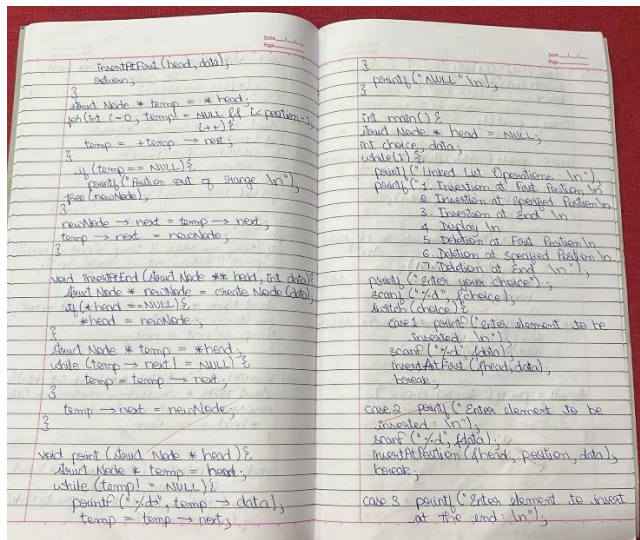 Date
Page
insertAtFirst (head, data);
return;
}
struct Node * temp = * head;
for (int i=0, temp! = NULL && i< position-1,
i++) {
temp = +temp → next;
}
if (temp == NULL) {
printf ("Position out of range \n");
free (newNode);
}
newNode → next = temp → next;
temp → next = newNode;
}
void insertAtEnd (struct Node ** head, int data) {
struct Node * newNode = create Node (data);
if (*head == NULL) {
*head = newNode;
}
struct Node * temp = *head;
while (temp → next! = NULL) {
temp = temp → next;
}
temp → next = newNode;
}
void print (struct Node * head) {
struct Node * temp = head;
while (temp! = NULL) {
printf ("%d", temp → data);
temp = temp → next;
Date
Page
}
printf ("NULL" \n);
}
int main() {
struct Node * head = NULL;
int choice, data;
while(1) {
printf ("Linked List Operations \n");
printf ("1. Insertion at First Position \n
2. Insertion at specified Position \n
3. Insertion at End \n
4. Display \n
5. Deletion at First Position \n
6. Deletion at specified Position \n
7. Deletion at End \n");
printf ("Enter your choice");
scanf ("%d", &choice);
switch (choice) {
case 1: printf ("Enter element to be
inserted: \n");
scanf ("%d", &data);
insertAtFirst (&head, data);
break;
case 2 printf ("Enter element to be
inserted: \n");
scanf ("%d", &data);
insertAtPosition (&head, position, data);
break;
case 3 printf ("Enter element to insert
at the end: \n");